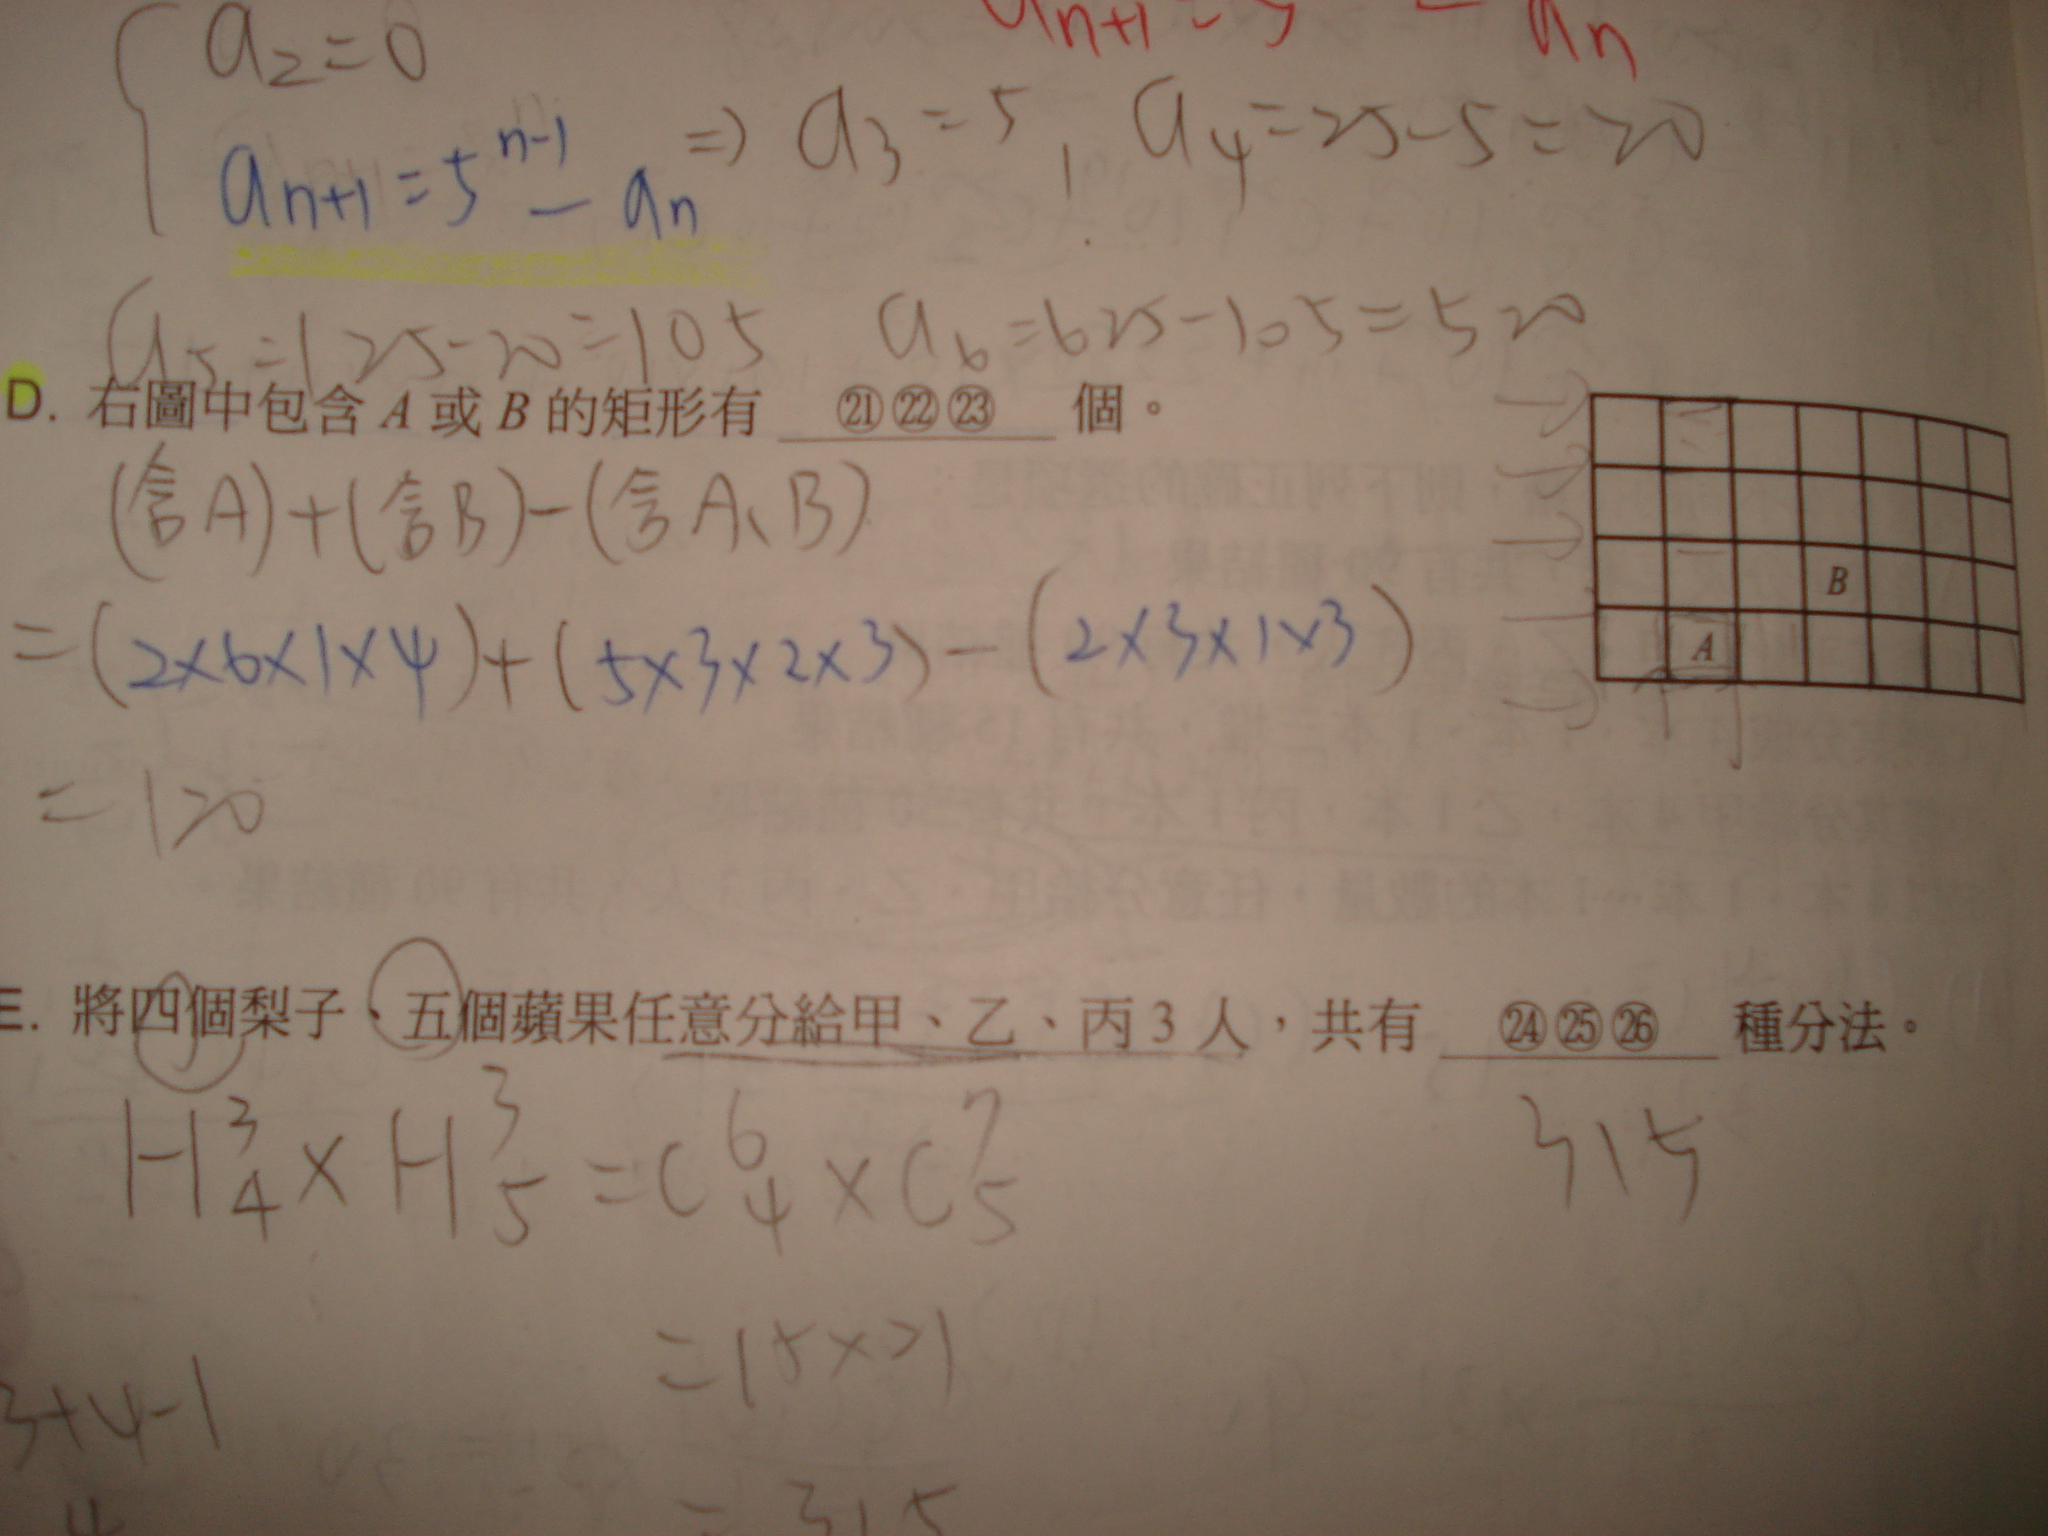 a2=0
an+1=5^n-1 - an ⇒ a3=5, a4=25-5=20
a5=125-20=105 a6=625-105=520
D. 右圖中包含 A 或 B 的矩形有 ㉑㉒㉓ 個。
(含A)+(含B)-(含A、B)
=(2×6×1×4)+(5×3×2×3)-(2×3×1×3)
B
A
=120
E. 將四個梨子、五個蘋果任意分給甲、乙、丙 3 人，共有 ㉔㉕㉖ 種分法。
H^3_4 × H^3_5 = C^6_4 × C^7_5
315
=15×21
3+4-1
4
=315